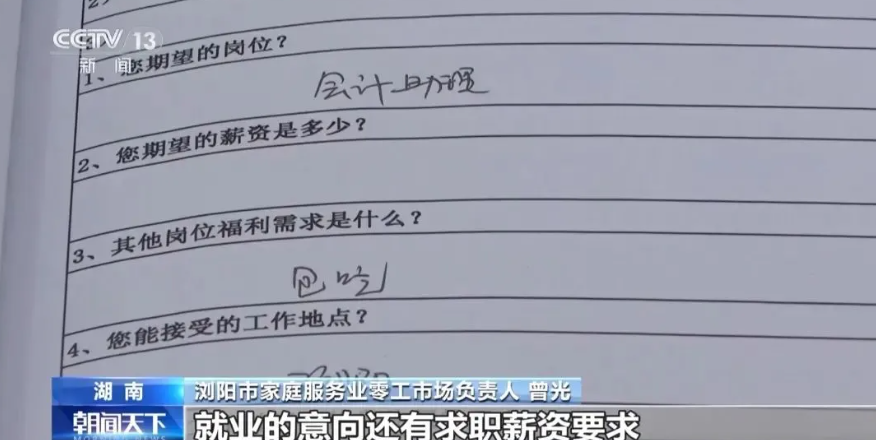 CCTV 13
新闻
1、您期望的岗位？
会计助理
2、您期望的薪资是多少？
3、其他岗位福利需求是什么？
包吃
4、您能接受的工作地点？
湖南
浏阳市家庭服务业零工市场负责人 曾光
朝闻天下
就业的意向还有求职薪资要求